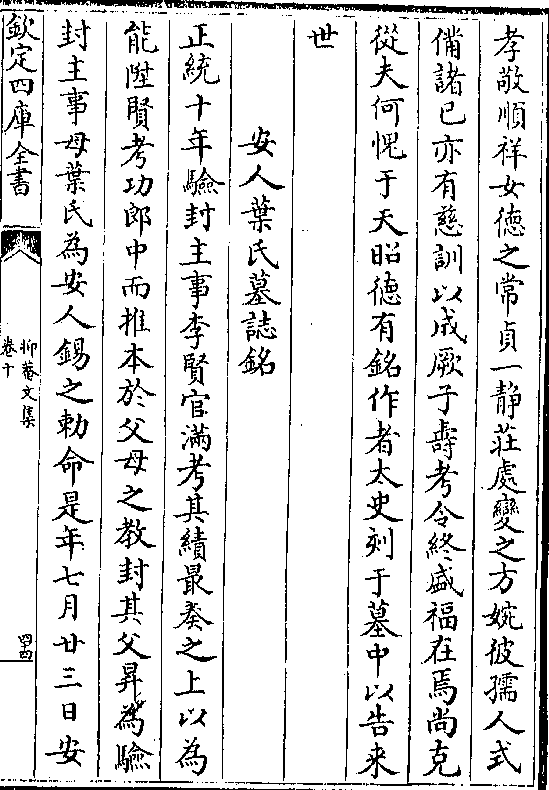 孝敬順祥女徳之常貞一静莊處變之方婉彼孺人式
備諸已亦有慈訓以成厥子壽考令終盛福在焉尚克
從夫何愧于天昭德有銘作者太史刻于墓中以告来
世
安人葉氏墓誌銘
正統十年驗封主事李賢官滿考其績最奏之上以為
能陞賢考功郎中而推本於父母之教封其父昇為驗
封主事母葉氏為安人錫之勅命是年七月廿三日安
欽定四庫全書
抑菴文集
卷十
四十四